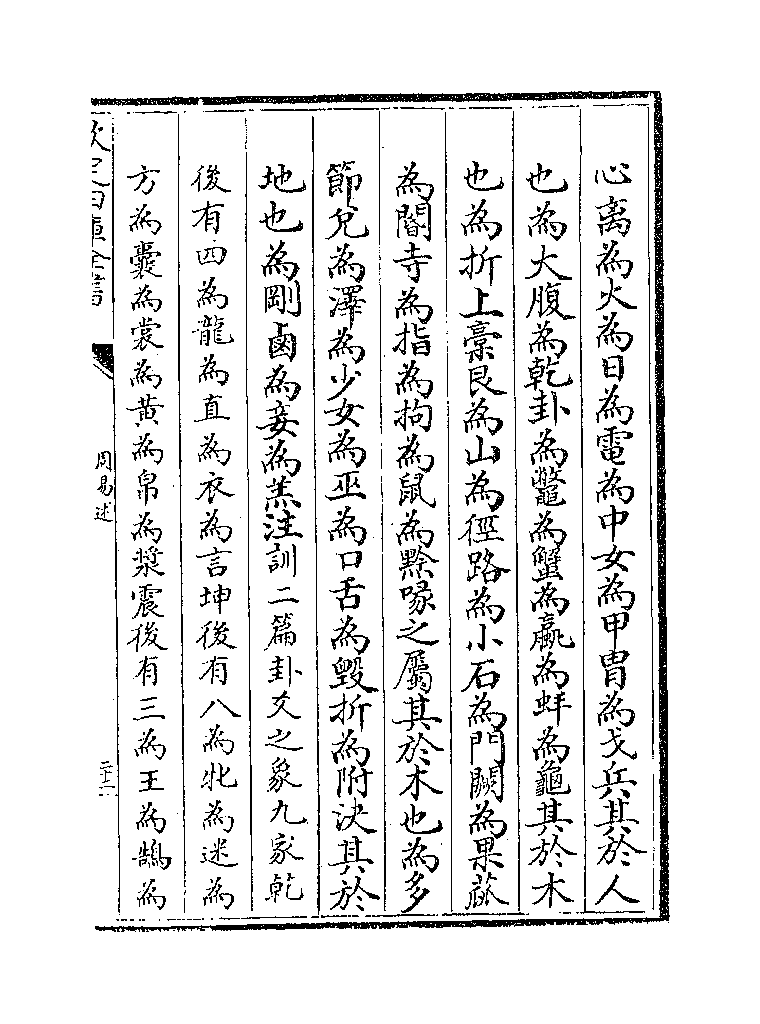 心离為火為日為電為中女為甲胄為戈兵其於人
也為大腹為乾卦為鼈為蟹為蠃為蚌為龜其於木
也為折上槀艮為山為徑路為小石為門闕為果蓏
為閽寺為指為拘為鼠為黔喙之屬其於木也為多
節兌為澤為少女為巫為口舌為毀折為附決其於
地也為剛鹵為妾為羔注訓二篇卦爻之象九家乾
後有四為龍為直為衣為言坤後有八為牝為迷為
方為囊為裳為黃為帛為漿震後有三為王為鵠為
欽定四庫全書
周易述
二十二